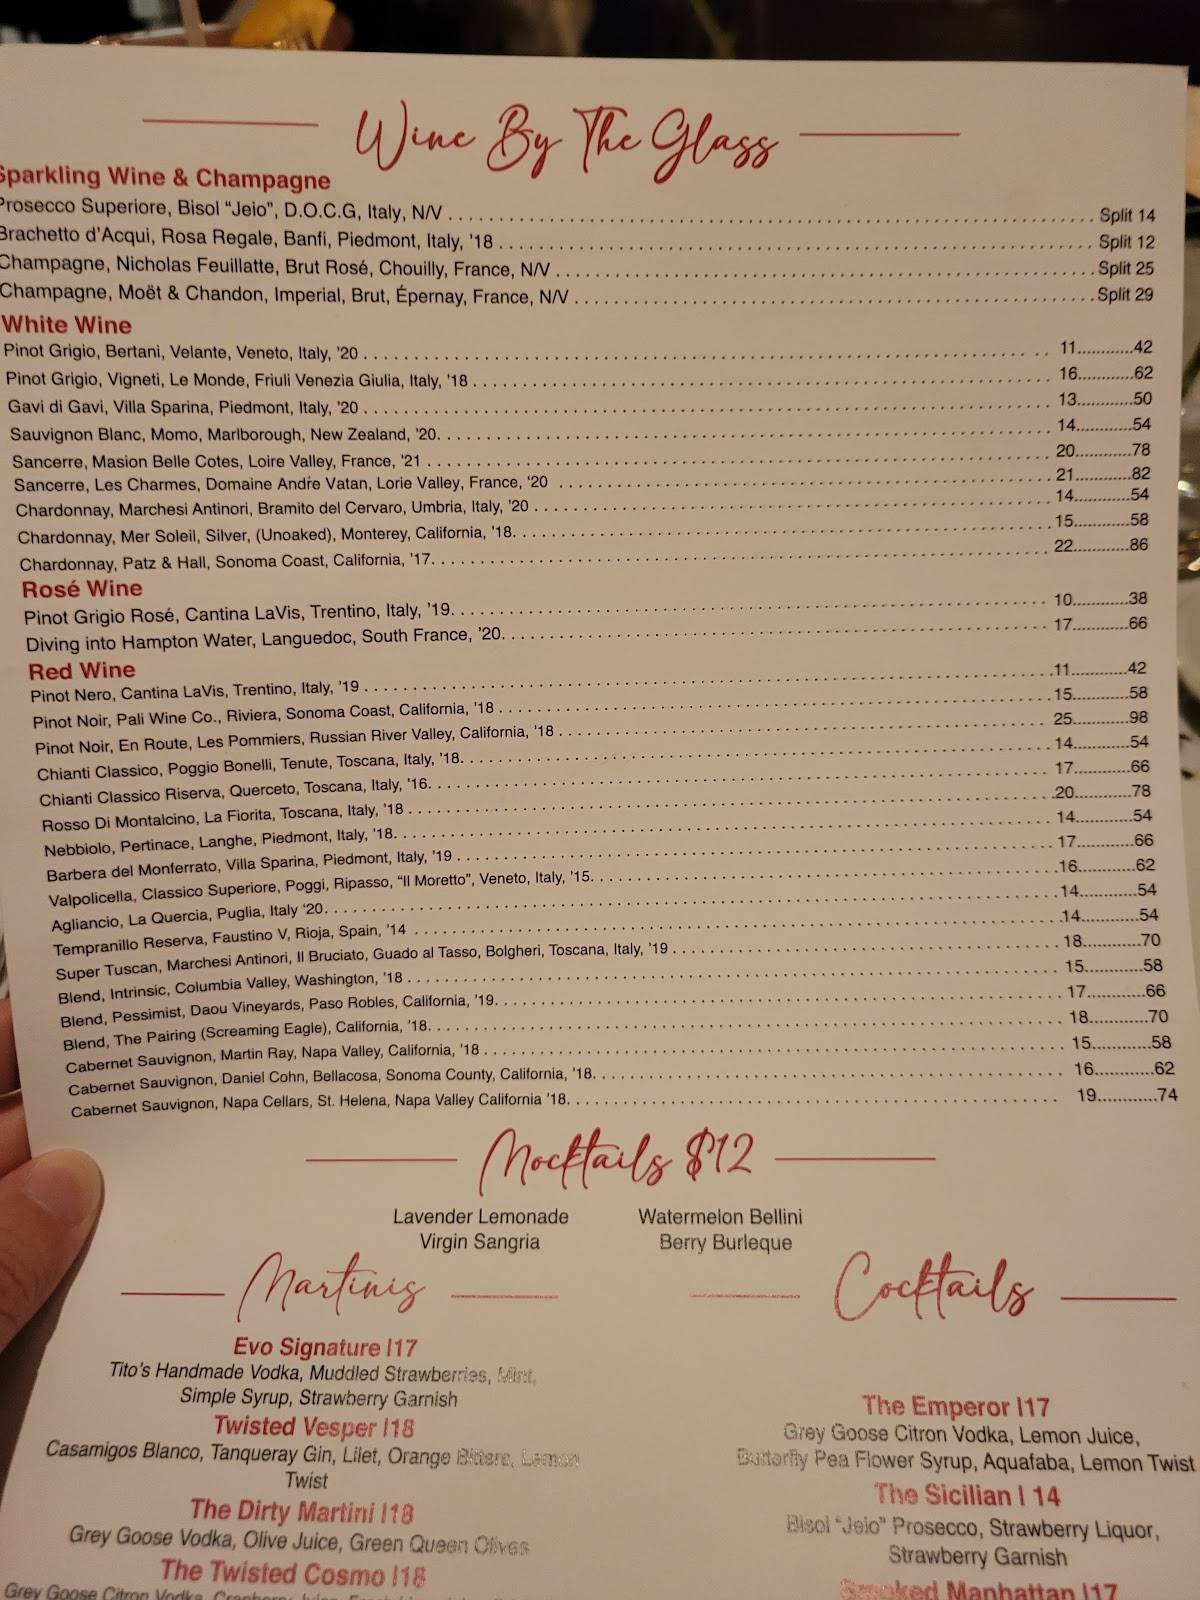 Wine By The Glass
Sparkling Wine & Champagne
Prosecco Superiore, Bisol “Jeio”, D.O.C.G, Italy, N/V Split 14
Brachetto d’Acqui, Rosa Regale, Banfi, Piedmont, Italy, '18 Split 12
Champagne, Nicholas Feuillatte, Brut Rosé, Chouilly, France, N/V Split 25
Champagne, Moët & Chandon, Imperial, Brut, Épernay, France, N/V Split 29
White Wine
Pinot Grigio, Bertani, Velante, Veneto, Italy, '20 11............42
Pinot Grigio, Vigneti, Le Monde, Friuli Venezia Giulia, Italy, '18 16............62
Gavi di Gavi, Villa Sparina, Piedmont, Italy, '20 13............50
Sauvignon Blanc, Momo, Marlborough, New Zealand, '20. 14............54
Sancerre, Masion Belle Cotes, Loire Valley, France, '21 20............78
Sancerre, Les Charmes, Domaine Andre Vatan, Lorie Valley, France, ‘20 21............82
Chardonnay, Marchesi Antinori, Bramito del Cervaro, Umbria, Italy, '20 14............54
Chardonnay, Mer Soleil, Silver, (Unoaked), Monterey, California, '18. 15............58
Chardonnay, Patz & Hall, Sonoma Coast, California, '17. 22............86
Rosé Wine
Pinot Grigio Rosé, Cantina LaVis, Trentino, Italy, '19. 10............38
Diving into Hampton Water, Languedoc, South France, '20. 17............66
Red Wine
Pinot Nero, Cantina LaVis, Trentino, Italy, '19 11............42
Pinot Noir, Pali Wine Co., Riviera, Sonoma Coast, California, '18 15............58
Pinot Noir, En Route, Les Pommiers, Russian River Valley, California, '18 25............98
Chianti Classico, Poggio Bonelli, Tenute, Toscana, Italy, '18. 14............54
Chianti Classico Riserva, Querceto, Toscana, Italy, '16. 17............66
Rosso Di Montalcino, La Fiorita, Toscana, Italy, '18 20............78
Nebbiolo, Pertinace, Langhe, Piedmont, Italy, '18. 14............54
Barbera del Monferrato, Villa Sparina, Piedmont, Italy, '19 17............66
Valpolicella, Classico Superiore, Poggi, Ripasso, “Il Moretto”, Veneto, Italy, '15. 16............62
Agliancio, La Quercia, Puglia, Italy ‘20. 14............54
Tempranillo Reserva, Faustino V, Rioja, Spain, '14 14............54
Super Tuscan, Marchesi Antinori, Il Bruciato, Guado al Tasso, Bolgheri, Toscana, Italy, '19 18............70
Blend, Intrinsic, Columbia Valley, Washington, '18 15............58
Blend, Pessimist, Daou Vineyards, Paso Robles, California, '19. 17............66
Blend, The Pairing (Screaming Eagle), California, '18. 18............70
Cabernet Sauvignon, Martin Ray, Napa Valley, California, '18 15............58
Cabernet Sauvignon, Daniel Cohn, Bellacosa, Sonoma County, California, '18. 16............62
Cabernet Sauvignon, Napa Cellars, St. Helena, Napa Valley California '18. 19............74
Mocktails $12
Lavender Lemonade
Virgin Sangria
Watermelon Bellini
Berry Burleque
Martinis
Evo Signature |17
Tito's Handmade Vodka, Muddled Strawberries, Mint,
Simple Syrup, Strawberry Garnish
Twisted Vesper |18
Casamigos Blanco, Tanqueray Gin, Lilet, Orange Bitters, Lemon
Twist
The Dirty Martini |18
Grey Goose Vodka, Olive Juice, Green Queen Olives
The Twisted Cosmo |18
Grey Goose Citron Vodka, Cranberry Juice,
Cocktails
The Emperor |17
Grey Goose Citron Vodka, Lemon Juice,
Butterfly Pea Flower Syrup, Aquafaba, Lemon Twist
The Sicilian | 14
Bisol “Jeio” Prosecco, Strawberry Liquor,
Strawberry Garnish
Smoked Manhattan |17